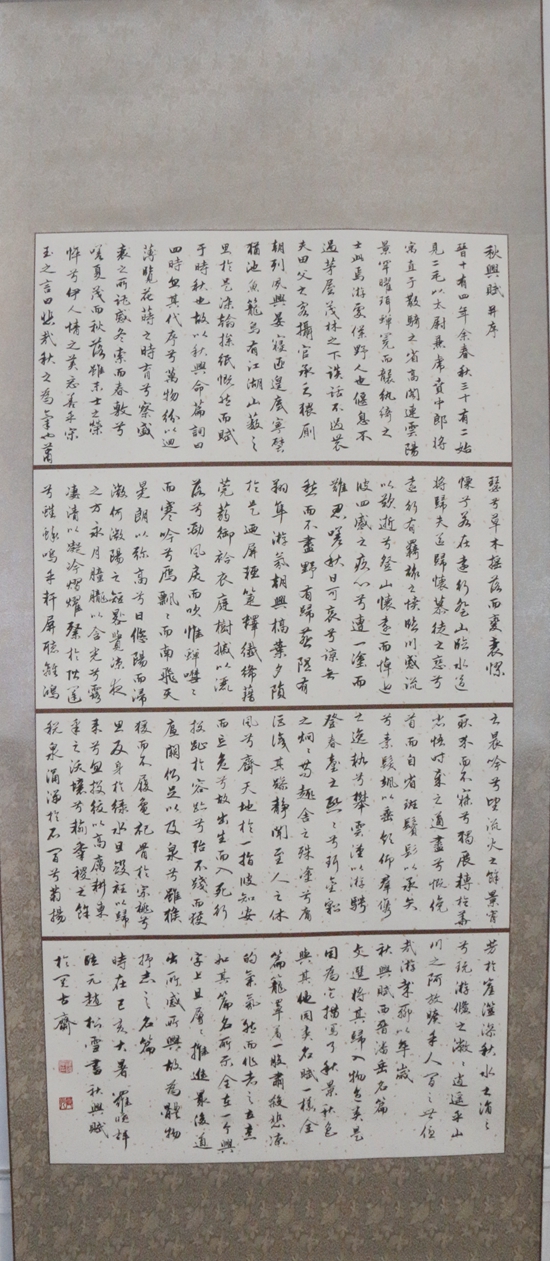 秋興賦 并序
晉十有四年余春秋三十有二始
見二毛以太尉兼虎賁中郎將
寓直于散騎之省高閣連雲陽
景罕曜珥蟬冕而襲紈綺之
士此焉游處僕野人也偃息不
過茅屋茂林之下談話不過農
夫田父之客攝官承乏猥厠
朝列夙興晏寢匪遑底寧譬
猶池魚籠鳥有江湖山藪之
思於是染翰操紙慨然而賦
于時秋也故以秋興命篇詞曰
四時忽其代序兮萬物紛以迴
薄覽花蒔之時育兮察盛
衰之所託感冬索而春敷兮
嗟夏茂而秋落雖末士之榮
悴兮伊人情之美惡善乎宋
玉之言曰悲哉秋之為氣也蕭
瑟兮草木搖落而變衰憀
慄兮若在遠行登山臨水送
將歸夫送歸懷慕徒之戀兮
遠行有羈旅之憤臨川感流
以歎逝兮登山懷遠而悼近
彼四慼之疚心兮遭一塗而
難忍嗟秋日可哀兮諒無
愁而不盡野有歸燕隰有
翔隼游氛朝興槁葉夕隕
於是迺屏輕箑釋纖絺藉
莞蒻御袷衣庭樹摵以洒
落兮勁風戾而吹惟蟬嘒嘒
而寒吟兮鴈飄飄而南飛天
晃朗以彌高兮日悠陽而浸
微何微陽之短晷覺涼夜
之方永月朣朧以含光兮露
凄清以凝冷熠燿粲於階闥
兮蟋蟀鳴乎軒屏聽離鴻
之晨吟兮望流火之餘景宵
耿介而不寐兮獨展轉於華
省悟時歲之遒盡兮慨俛
首而自省斑鬢髟以承弁
兮素髮颯以垂領仰群儁
之逸軌兮攀雲漢以游騁
登春臺之熙熙兮珥金貂
之炯炯苟趣舍之殊塗兮庸
詎識其躁靜聞至人之休
風兮齊天地於一指彼知安
而忘危兮故出生而入死行
投趾於容跡兮殆不踐而獲
底闕側足以及泉兮雖猴
猨而不履龜祀骨於宗祧兮
思反身於綠水且斂衽以歸
來兮忽投紱以高厲耕東
皋之沃壤兮輸黍稷之餘
稅泉涌湍於石間兮菊揚
芳於崖澨澡秋水之涓涓
兮玩游鯈之潎潎逍遙乎山
川之阿放曠乎人間之世優
哉游哉聊以卒歲
秋興賦西晉潘岳名篇
文選將其歸入物色类是
因為它描寫了秋景秋色
與其他同类名賦一樣全
篇籠罩着一股肅殺悲涼
的氣氛然而作者之立意
和其篇名所示全在一个興
字上且層層推進最後道
出所感所興故為體物
抒志之名篇
時在己亥大暑 羅
臨元趙松雪書秋興賦
於至古齋